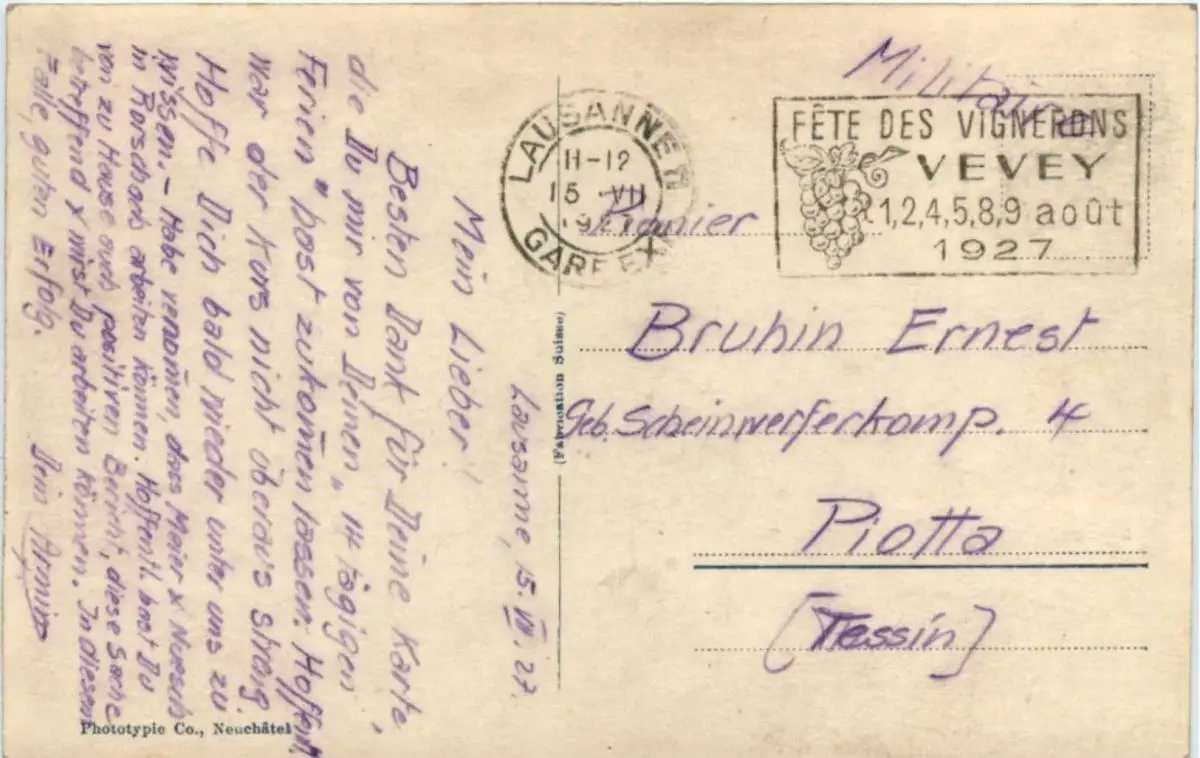 Lausanne, 15. VII. 27.
Mein Lieber!
Besten Dank für Deine Karte,
die Du mir von Deinen „14 tägigen
Ferien" hast zukom̅en lassen. Hoffentl.
war der Kurs nicht überaus streng.
Hoffe Dich bald wieder unter uns zu
wissen. – Habe vernom̅en, dass Meier &
in Rorschach arbeiten können. Hoffentl. hast Du
von zu Hause auch positiven Bericht, diese Sache
betreffend & wirst Du arbeiten können. In diesem
Falle, guten Erfolg.
Dein Armin
Phototypie Co., Neuchâtel
(Fabrication Suisse)
LAUSANNE
11-12
15 VII
GARE EX
Militaire
FÊTE DES VIGNERONS
VEVEY
1,2,4,5,8,9 août
1927
Pionier
Bruhin Ernest
Geb. Scheinwerferkomp. 4
Piotta
[Tessin]